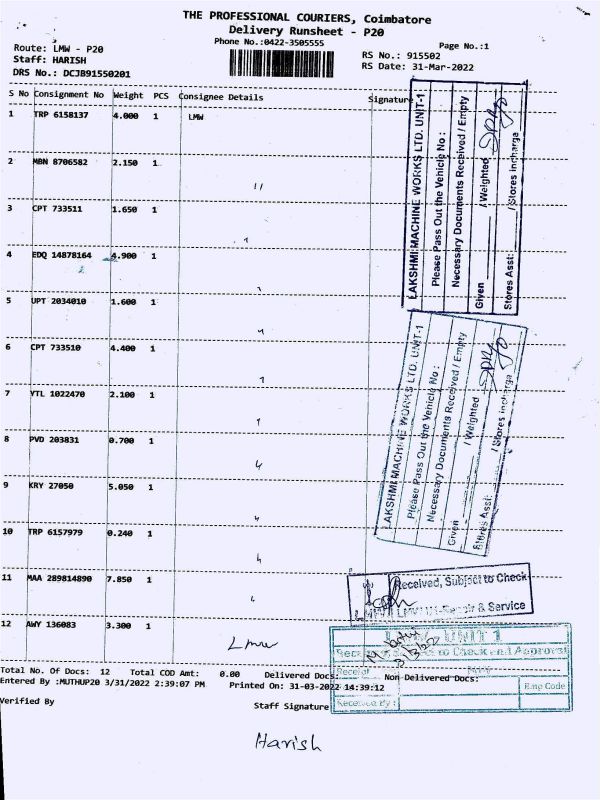 THE PROFESSIONAL COURIERS, Coimbatore
Delivery Runsheet - P20
Phone No.:0422-3505555
Page No.:1
Route: LMW - P20
Staff: HARISH
DRS No.: DCJB91550201
RS No.: 915502
RS Date: 31-Mar-2022
S No Consignment No Weight PCS Consignee Details Signature
1 TRP 6158137 4.000 1 LMW
2 MBN 8706582 2.150 1 "
3 CPT 733511 1.650 1
4 EDQ 14878164 4.900 1
5 UPT 2034010 1.600 1
6 CPT 733510 4.400 1
7 YTL 1022470 2.100 1
8 PVD 203831 0.700 1
9 KRY 27050 5.050 1
10 TRP 6157979 0.240 1
11 MAA 289814890 7.850 1
12 AWY 136083 3.300 1
Lmw
LAKSHMI MACHINE WORKS LTD. UNIT-1
Please Pass Out the Vehicle No :
Necessary Documents Received / Empty
Given / Weighted
Stores Asst: / Stores incharga
LAKSHMI MACHINE WORKS LTD. UNIT-1
Please Pass Out the Vehicle No :
Necessary Documents Received / Empty
Given / Weighted
Stores Asst: / Stores incharga
Received, Subject to Check
& Service
UNIT 1
to Check and Approval
Receipt
Emp Code
Received By :
Total No. Of Docs: 12 Total COD Amt: 0.00 Delivered Docs: Non-Delivered Docs:
Entered By :MUTHUP20 3/31/2022 2:39:07 PM Printed On: 31-03-2022 14:39:12
Verified By
Staff Signature
Harish